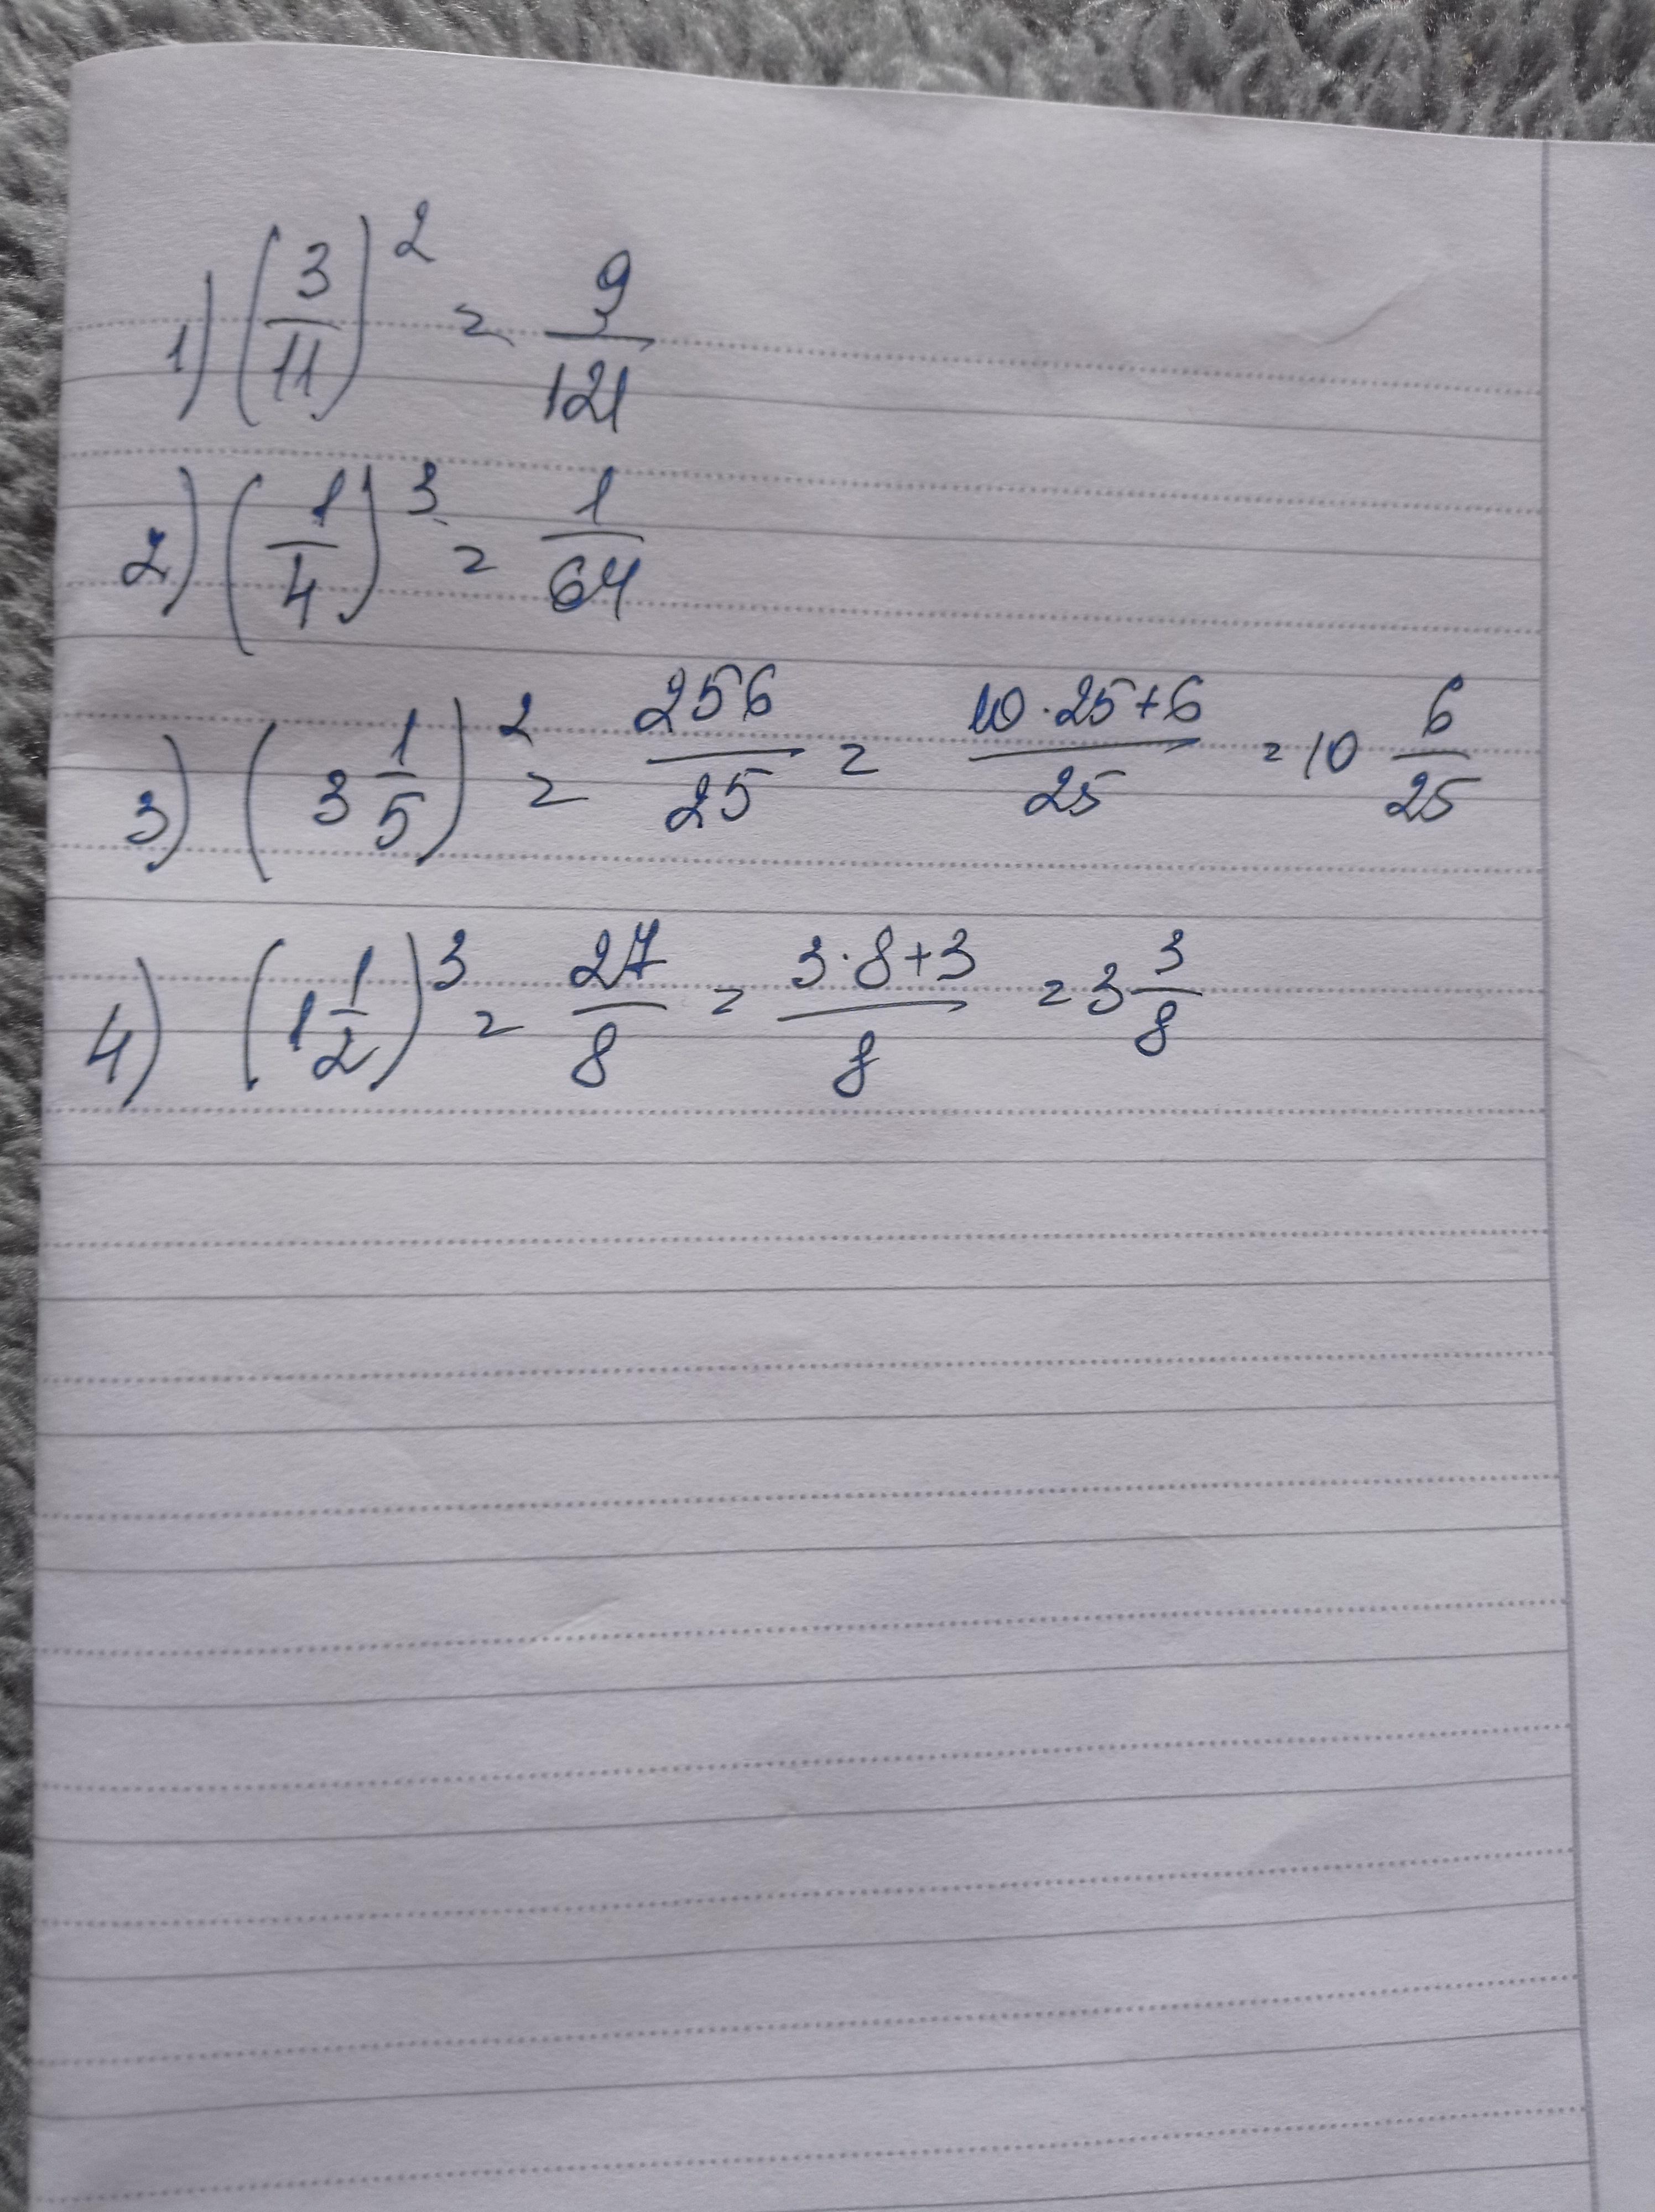 1) (3/11)² = 9/121
2) (1/4)³ = 1/64
3) (3 1/5)² = 256/25 = (10·25+6)/25 = 10 6/25
4) (1 1/2)³ = 27/8 = (3·8+3)/8 = 3 3/8